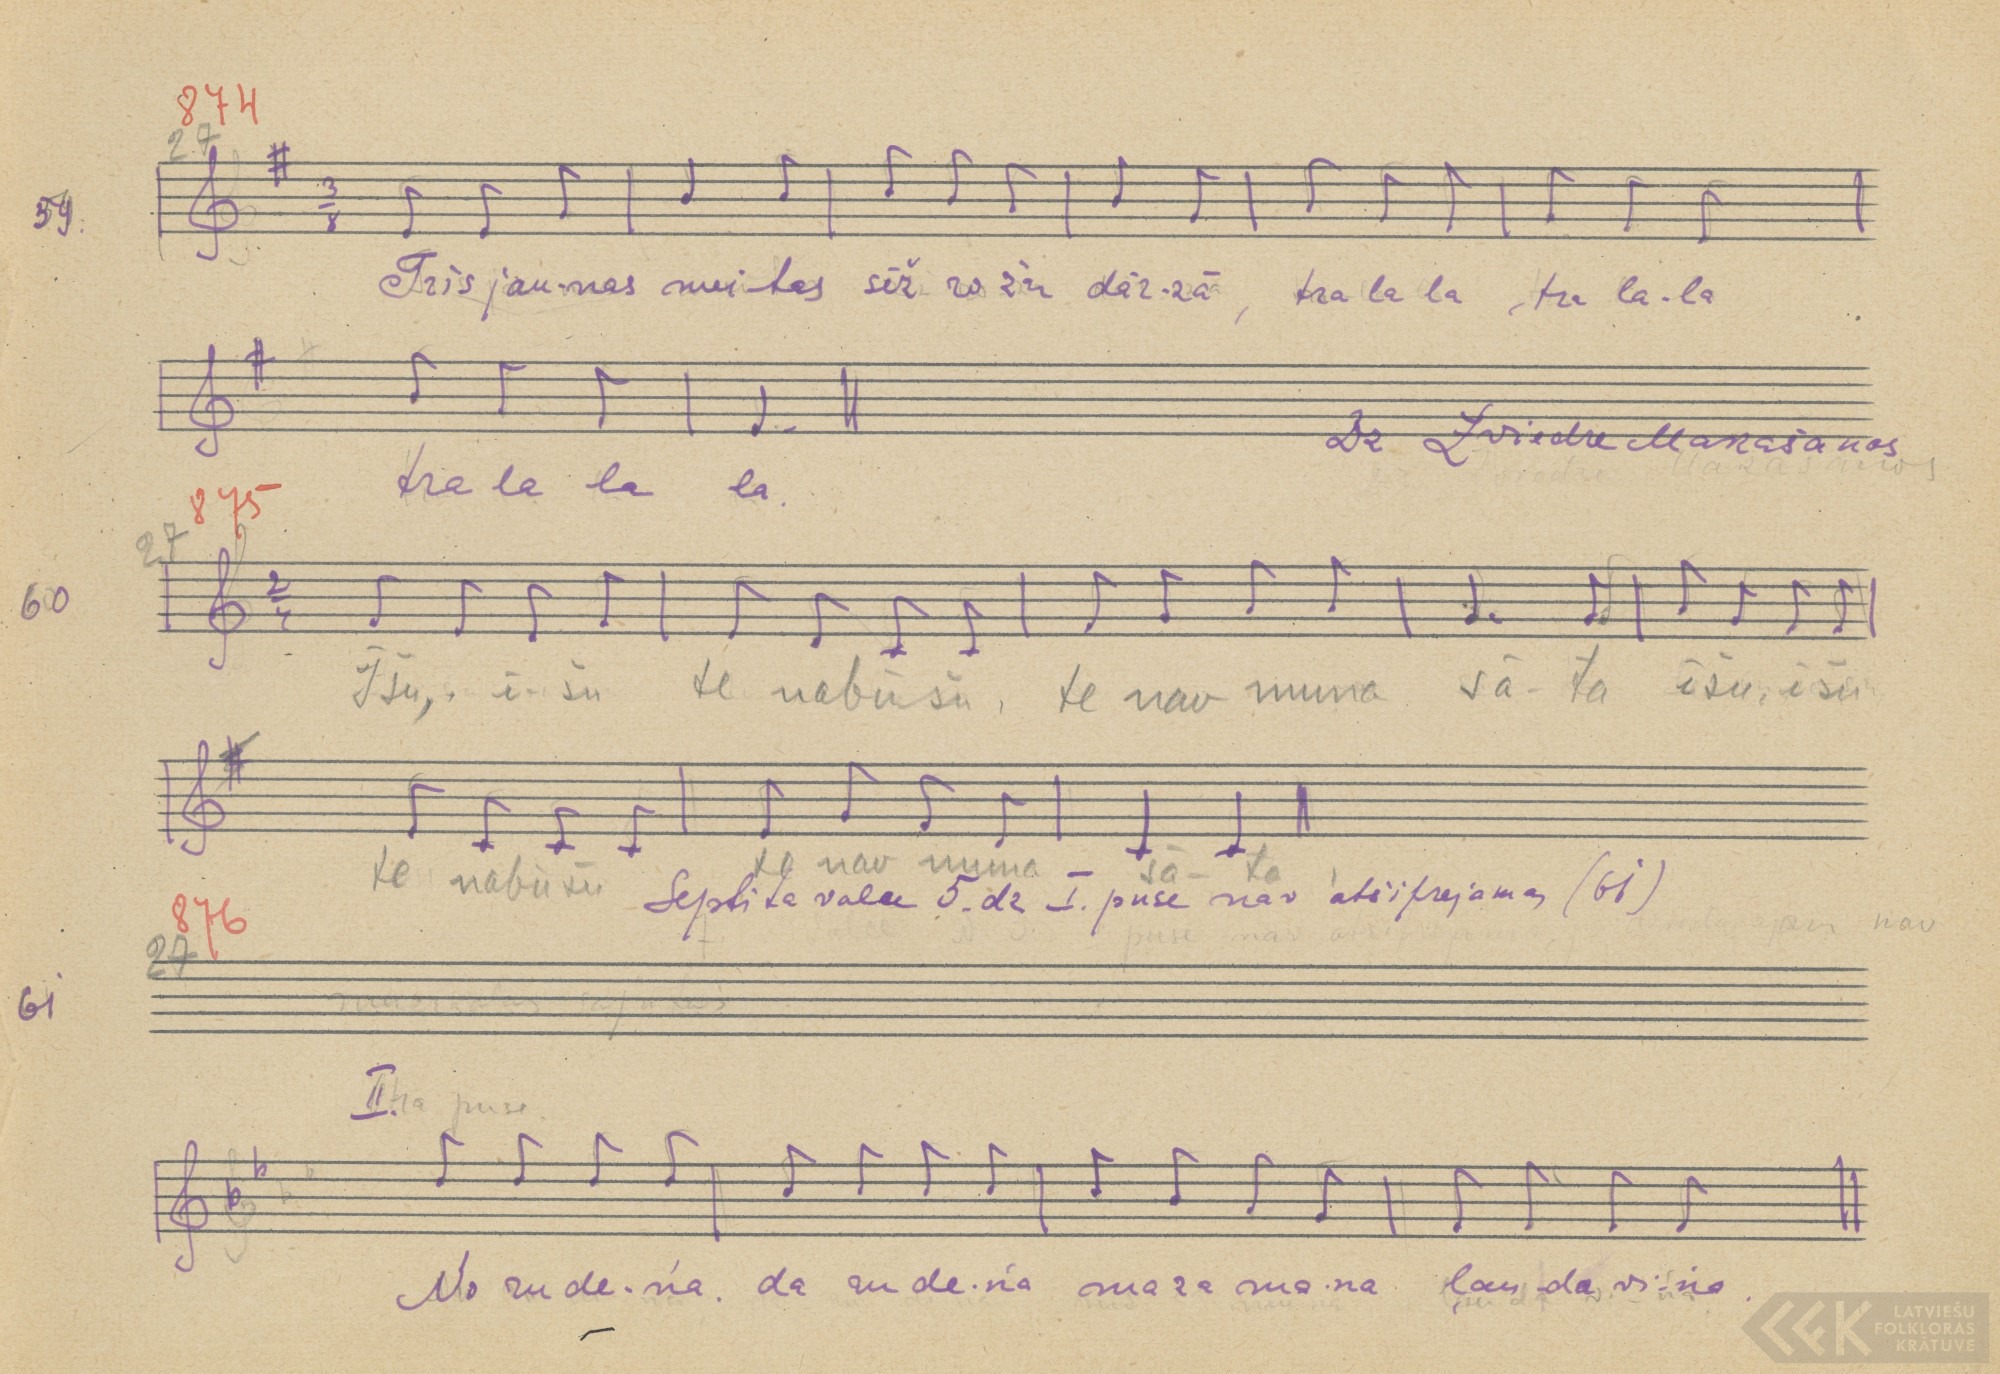 874
27
59. 3/8
Trīs jau-nas mei-tas sēž ro žu dār-zā, tra la la, tra la-la
tra la la la.
Dz Zviedre Makašānos
875
27
60 2/4
Īšu, i-šu te nabūšu, te nav muna sā-ta īšu, išu
te nabūšu te nav muna sā-ta
Septīta valce 5. dz I. puse nav atšifrejama (61)
876
27
61
II.tra puse.
No ru de-ņa. da ru de-ņa maza ma-na lau-da vi-ņa.
LATVIEŠU
FOLKLORAS
KRĀTUVE